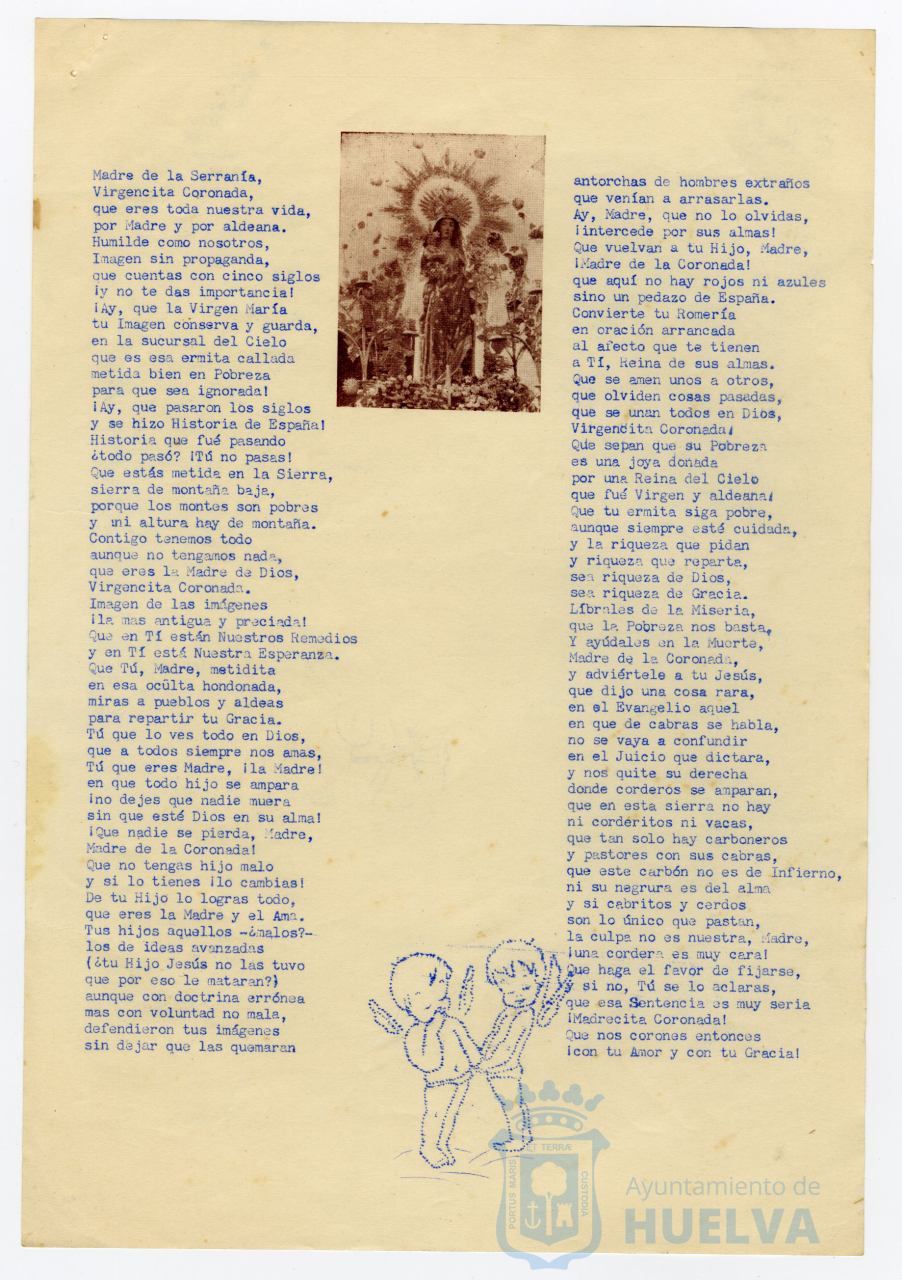 Madre de la Serranía,
Virgencita Coronada,
que eres toda nuestra vida,
por Madre y por aldeana.
Humilde como nosotros,
Imagen sin propaganda,
que cuentas con cinco siglos
¡y no te das importancia!
¡Ay, que la Virgen María
tu Imagen conserva y guarda,
en la sucursal del Cielo
que es esa ermita callada
metida bien en Pobreza
para que sea ignorada!
¡Ay, que pasaron los siglos
y se hizo Historia de España!
Historia que fué pasando
¿todo pasó? ¡Tú no pasas!
Que estás metida en la Sierra,
sierra de montaña baja,
porque los montes son pobres
y ni altura hay de montaña.
Contigo tenemos todo
aunque no tengamos nada,
que eres la Madre de Dios,
Virgencita Coronada.
Imagen de las imágenes
¡la mas antigua y preciada!
Que en Tí están Nuestros Remedios
y en Tí está Nuestra Esperanza.
Que Tú, Madre, metidita
en esa ocùlta hondonada,
miras a pueblos y aldeas
para repartir tu Gracia.
Tú que lo ves todo en Dios,
que a todos siempre nos amas,
Tú que eres Madre, ¡la Madre!
en que todo hijo se ampara
¡no dejes que nadie muera
sin que esté Dios en su alma!
¡Que nadie se pierda, Madre,
Madre de la Coronada!
Que no tengas hijo malo
y si lo tienes ¡lo cambias!
De tu Hijo lo logras todo,
que eres la Madre y el Ama.
Tus hijos aquellos -¿malos?-
los de ideas avanzadas
(¿tu Hijo Jesús no las tuvo
que por eso le mataran?)
aunque con doctrina errónea
mas con voluntad no mala,
defendieron tus imágenes
sin dejar que las quemaran
antorchas de hombres extraños
que venían a arrasarlas.
Ay, Madre, que no lo olvidas,
¡intercede por sus almas!
Que vuelvan a tu Hijo, Madre,
¡Madre de la Coronada!
que aquí no hay rojos ni azules
sino un pedazo de España.
Convierte tu Romería
en oración arrancada
al afecto que te tienen
a Tí, Reina de sus almas.
Que se amen unos a otros,
que olviden cosas pasadas,
que se unan todos en Dios,
Virgencita Coronada!
Que sepan que su Pobreza
es una joya donada
por una Reina del Cielo
que fué Virgen y aldeana!
Que tu ermita siga pobre,
aunque siempre esté cuidada,
y la riqueza que pidan
y riqueza que reparta,
sea riqueza de Dios,
sea riqueza de Gracia.
Líbrales de la Miseria,
que la Pobreza nos basta.
Y ayúdales en la Muerte,
Madre de la Coronada,
y adviértele a tu Jesús,
que dijo una cosa rara,
en el Evangelio aquel
en que de cabras se habla,
no se vaya a confundir
en el Juicio que dictara,
y nos quite su derecha
donde corderos se amparan,
que en esta sierra no hay
ni corderitos ni vacas,
que tan solo hay carboneros
y pastores con sus cabras,
que este carbón no es de Infierno,
ni su negrura es del alma
y si cabritos y cerdos
son lo único que pastan,
la culpa no es nuestra, Madre,
¡una cordera es muy cara!
Que haga el favor de fijarse,
y si no, Tú se lo aclaras,
que esa Sentencia es muy seria
¡Madrecita Coronada!
Que nos corones entonces
¡con tu Amor y con tu Gracia!
PORTUS MARIS
ET TERRÆ
CUSTODIA
Ayuntamiento de
HUELVA